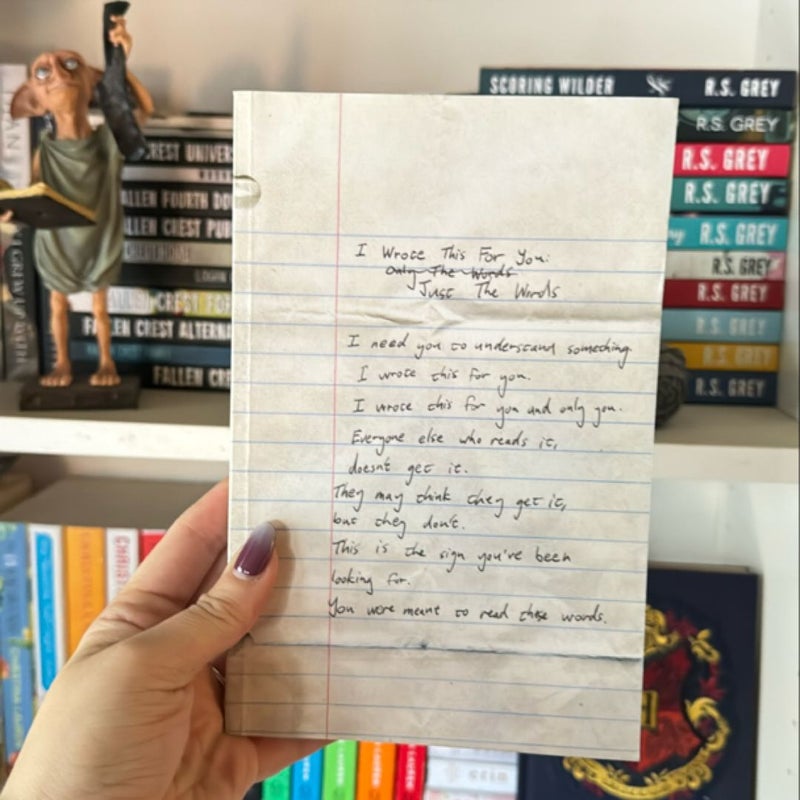 SCORING WILDER R.S. GREY
R.S. GREY
R.S. GREY
R.S. GREY
R.S. GREY
R.S. GREY
R.S. GREY
R.S. GREY
R.S. GREY
R.S. GREY
CREST UNIVERS
FALLEN FOURTH DO
FALLEN CREST PUB
FALLEN CREST ALTERNA
FALLEN CRE
I Wrote This For You:
Only The Words
Just The Words
I need you to understand something.
I wrote this for you.
I wrote this for you and only you.
Everyone else who reads it,
doesn't get it.
They may think they get it,
but they don't.
This is the sign you've been
looking for.
You were meant to read these words.